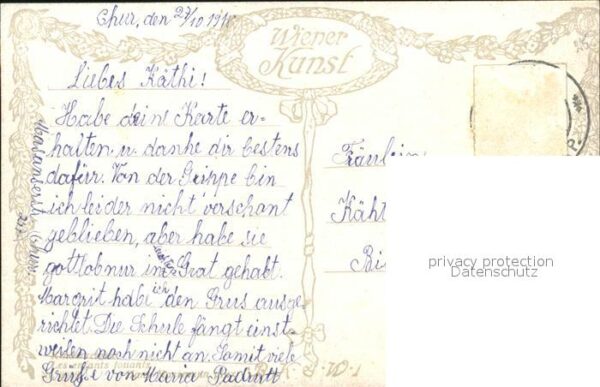 Chur, den 27/10 1918
Wiener
Kunst
Liebes Käthi!
Habe deine Karte er-
halten u. danke dir bestens
dafür. Von der Grippe bin
ich leider nicht verschont
geblieben, aber habe sie
gottlob nur im Grat gehabt.
Margrit habe ich den Grus ausge-
richtet. Die Schule fängt einst-
weilen noch nicht an. Somit viele
Grüsse von Maria Padrutt
Les enfants jouants
Fräulein
Käth
privacy protection
Datenschutz